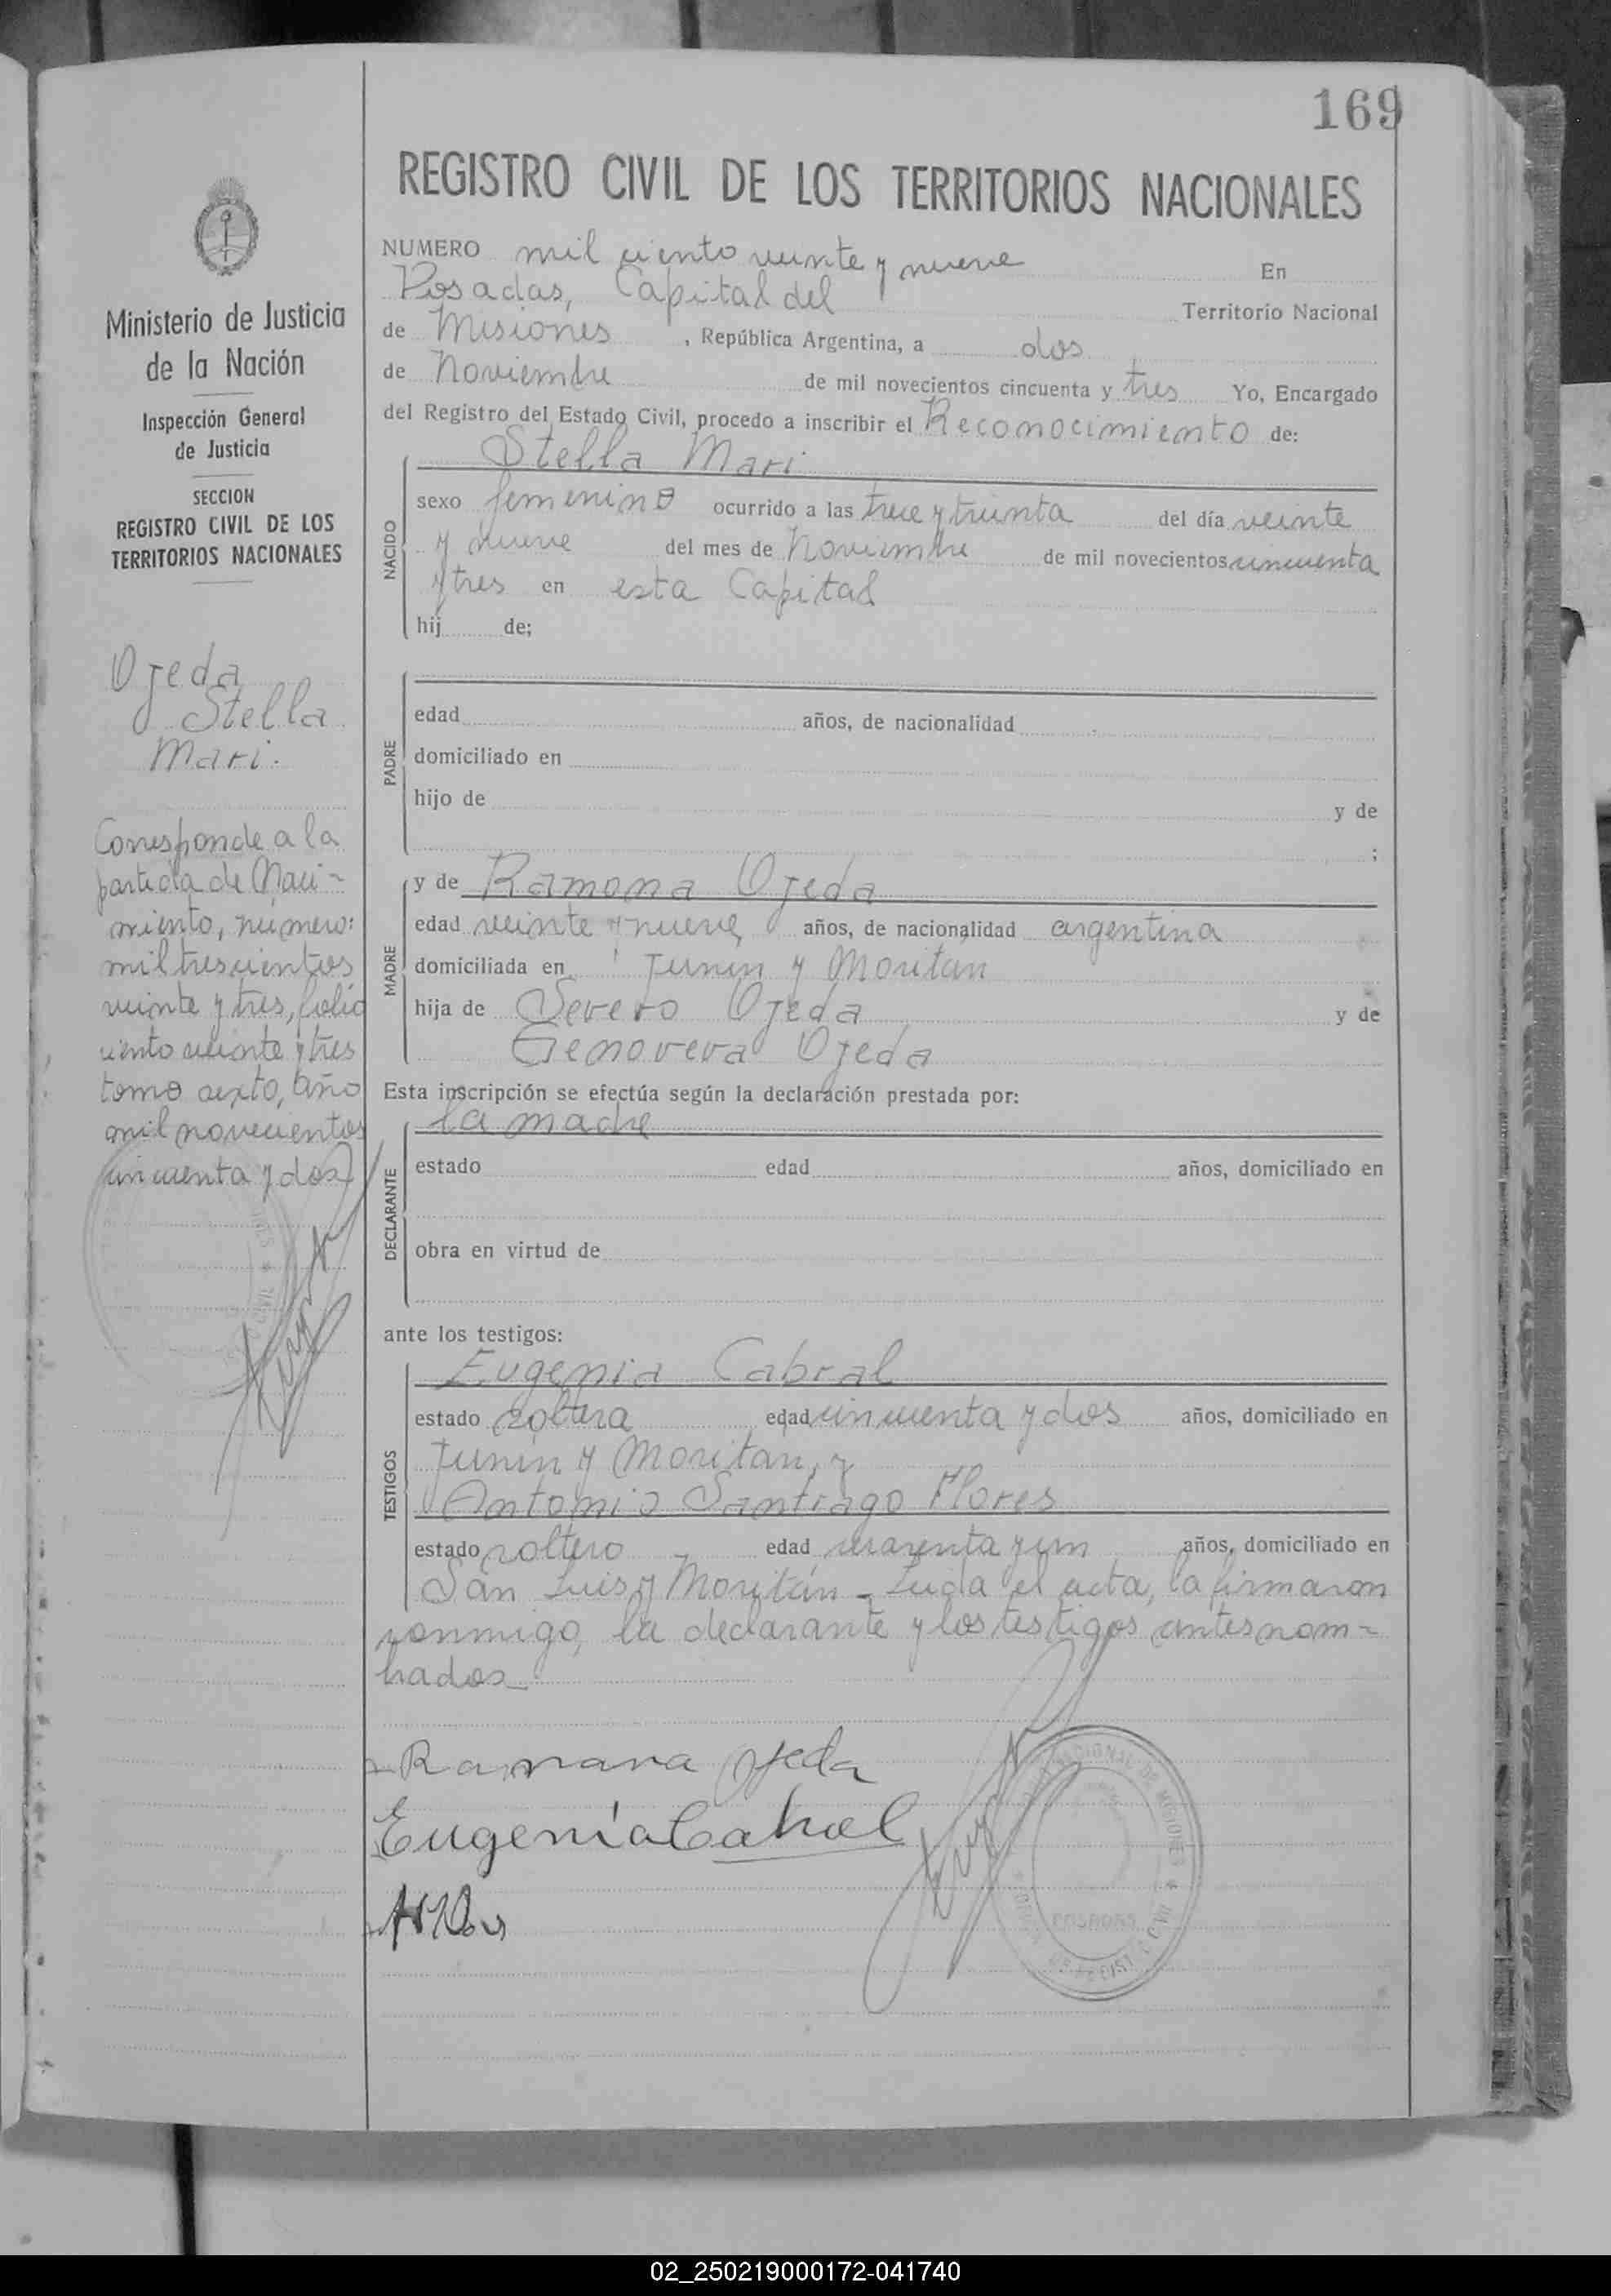 169
REGISTRO CIVIL DE LOS TERRITORIOS NACIONALES
NUMERO mil ciento veinte y nueve En
Posadas, Capital del Territorio Nacional
de Misiones, República Argentina, a dos
de Noviembre de mil novecientos cincuenta y tres Yo, Encargado
del Registro del Estado Civil, procedo a inscribir el Reconocimiento de:
Stella Mari
NACIDO
sexo femenino ocurrido a las trece y treinta del día veinte
y nueve del mes de Noviembre de mil novecientos cincuenta
y tres en esta Capital
hij de;
PADRE
edad años, de nacionalidad
domiciliado en
hijo de y de
;
MADRE
y de Ramona Ojeda
edad veinte y nueve años, de nacionalidad argentina
domiciliada en Junin y Moritan
hija de Severo Ojeda y de
Genoveva Ojeda
Esta inscripción se efectúa según la declaración prestada por:
la madre
DECLARANTE
estado edad años, domiciliado en
obra en virtud de
ante los testigos:
TESTIGOS
Eugenia Cabral
estado soltera edad cincuenta y dos años, domiciliado en
Junin y Moritan, y
Antonio Santiago Flores
estado soltero edad cuarenta y un años, domiciliado en
San Luis y Moritán - Leida el acta, la firmaron
conmigo, la declarante y los testigos antes nom=
brados_
Ramona Ojeda
Eugenia Cabral
POSADAS
Ministerio de Justicia
de la Nación
Inspección General
de Justicia
SECCION
REGISTRO CIVIL DE LOS
TERRITORIOS NACIONALES
Ojeda
Stella
Mari.
Corresponde a la
partida de Naci=
miento, número:
mil trescientos
veinte y tres, folio
ciento veinte y tres
tomo sexto, año
mil novecientos
cincuenta y dos
02_250219000172-041740